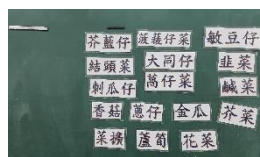 芥藍仔 菠薐仔菜 敏豆仔
結頭菜 大同仔 韭菜
刺瓜仔 萵仔菜 鹹菜
香菇 蔥仔 金瓜 芥菜
菜擴 蘆筍 花菜